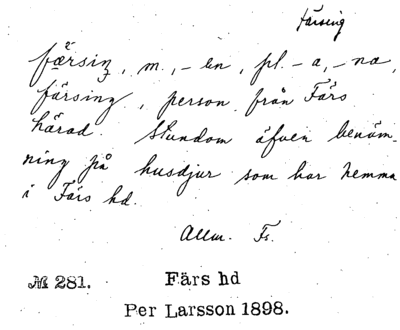 färsing
færsinz, m., -en, pl. -a, -na,
färsing, person från Färs
härad. Stundom äfven benäm-
ning på husdjur som har hemma
i Färs hd.
Allm. Fs.
№ 281.
Färs hd
Per Larsson 1898.